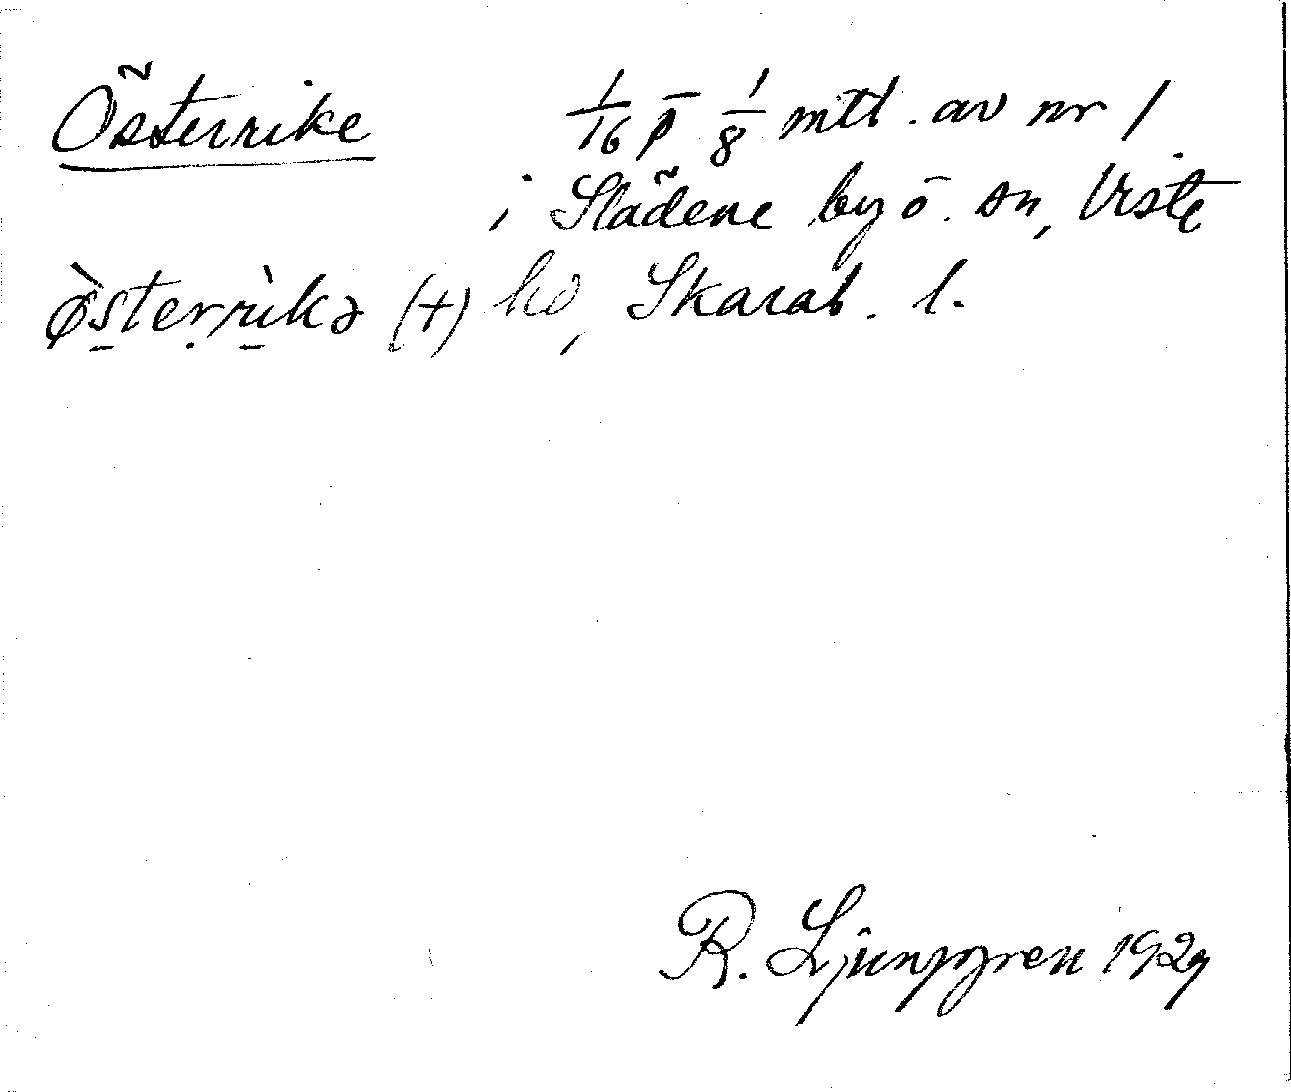 Österrike 1/16 p̄ 1/8 mtl. av nr 1
i Slädene by o. sn, Viste
ø̀sterrìkə (+) hd, Skarab. l.
R. Ljunggren 1929